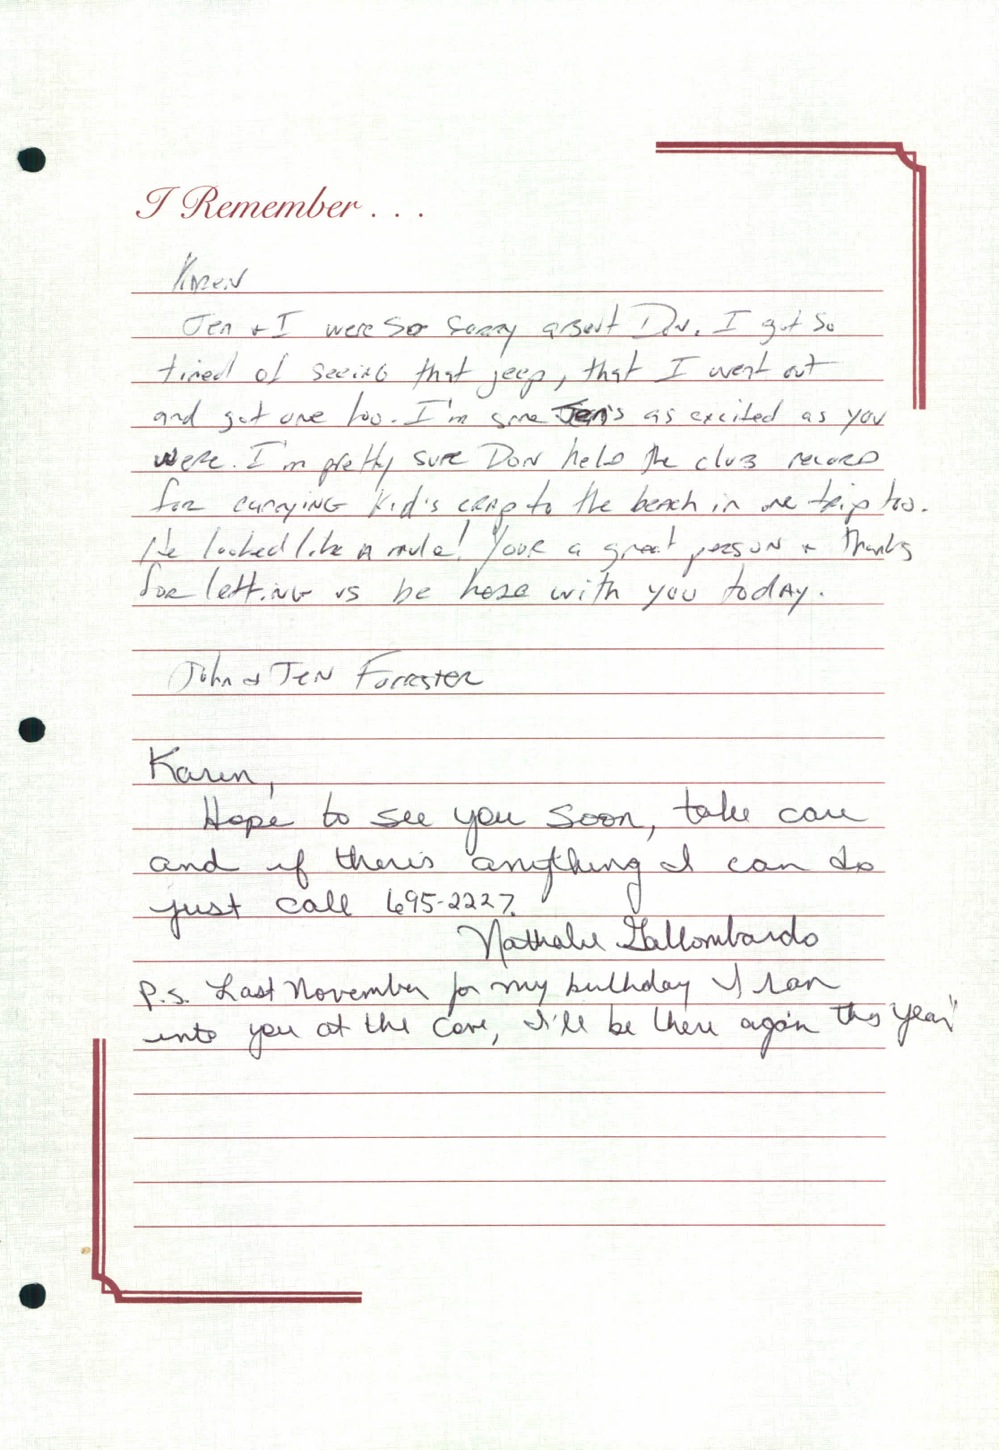 I Remember . . .
Karen
Jen + I were so sorry about Don. I got so
tired of seeing that jeep, that I went out
and got one too. I'm sure Jen's as excited as you
were. I'm pretty sure Don held the club record
for carrying kid's crap to the beach in one trip too.
He looked like a mule! Your a great person + thanks
for letting us be here with you today.
John & Jen Forrester
Karen,
Hope to see you soon, take care
and if theris anything I can do
just call 695-2227.
Nathalie Gallombardo
P.S. Last November for my birthday I ran
into you at the Cove, I'll be there again this year